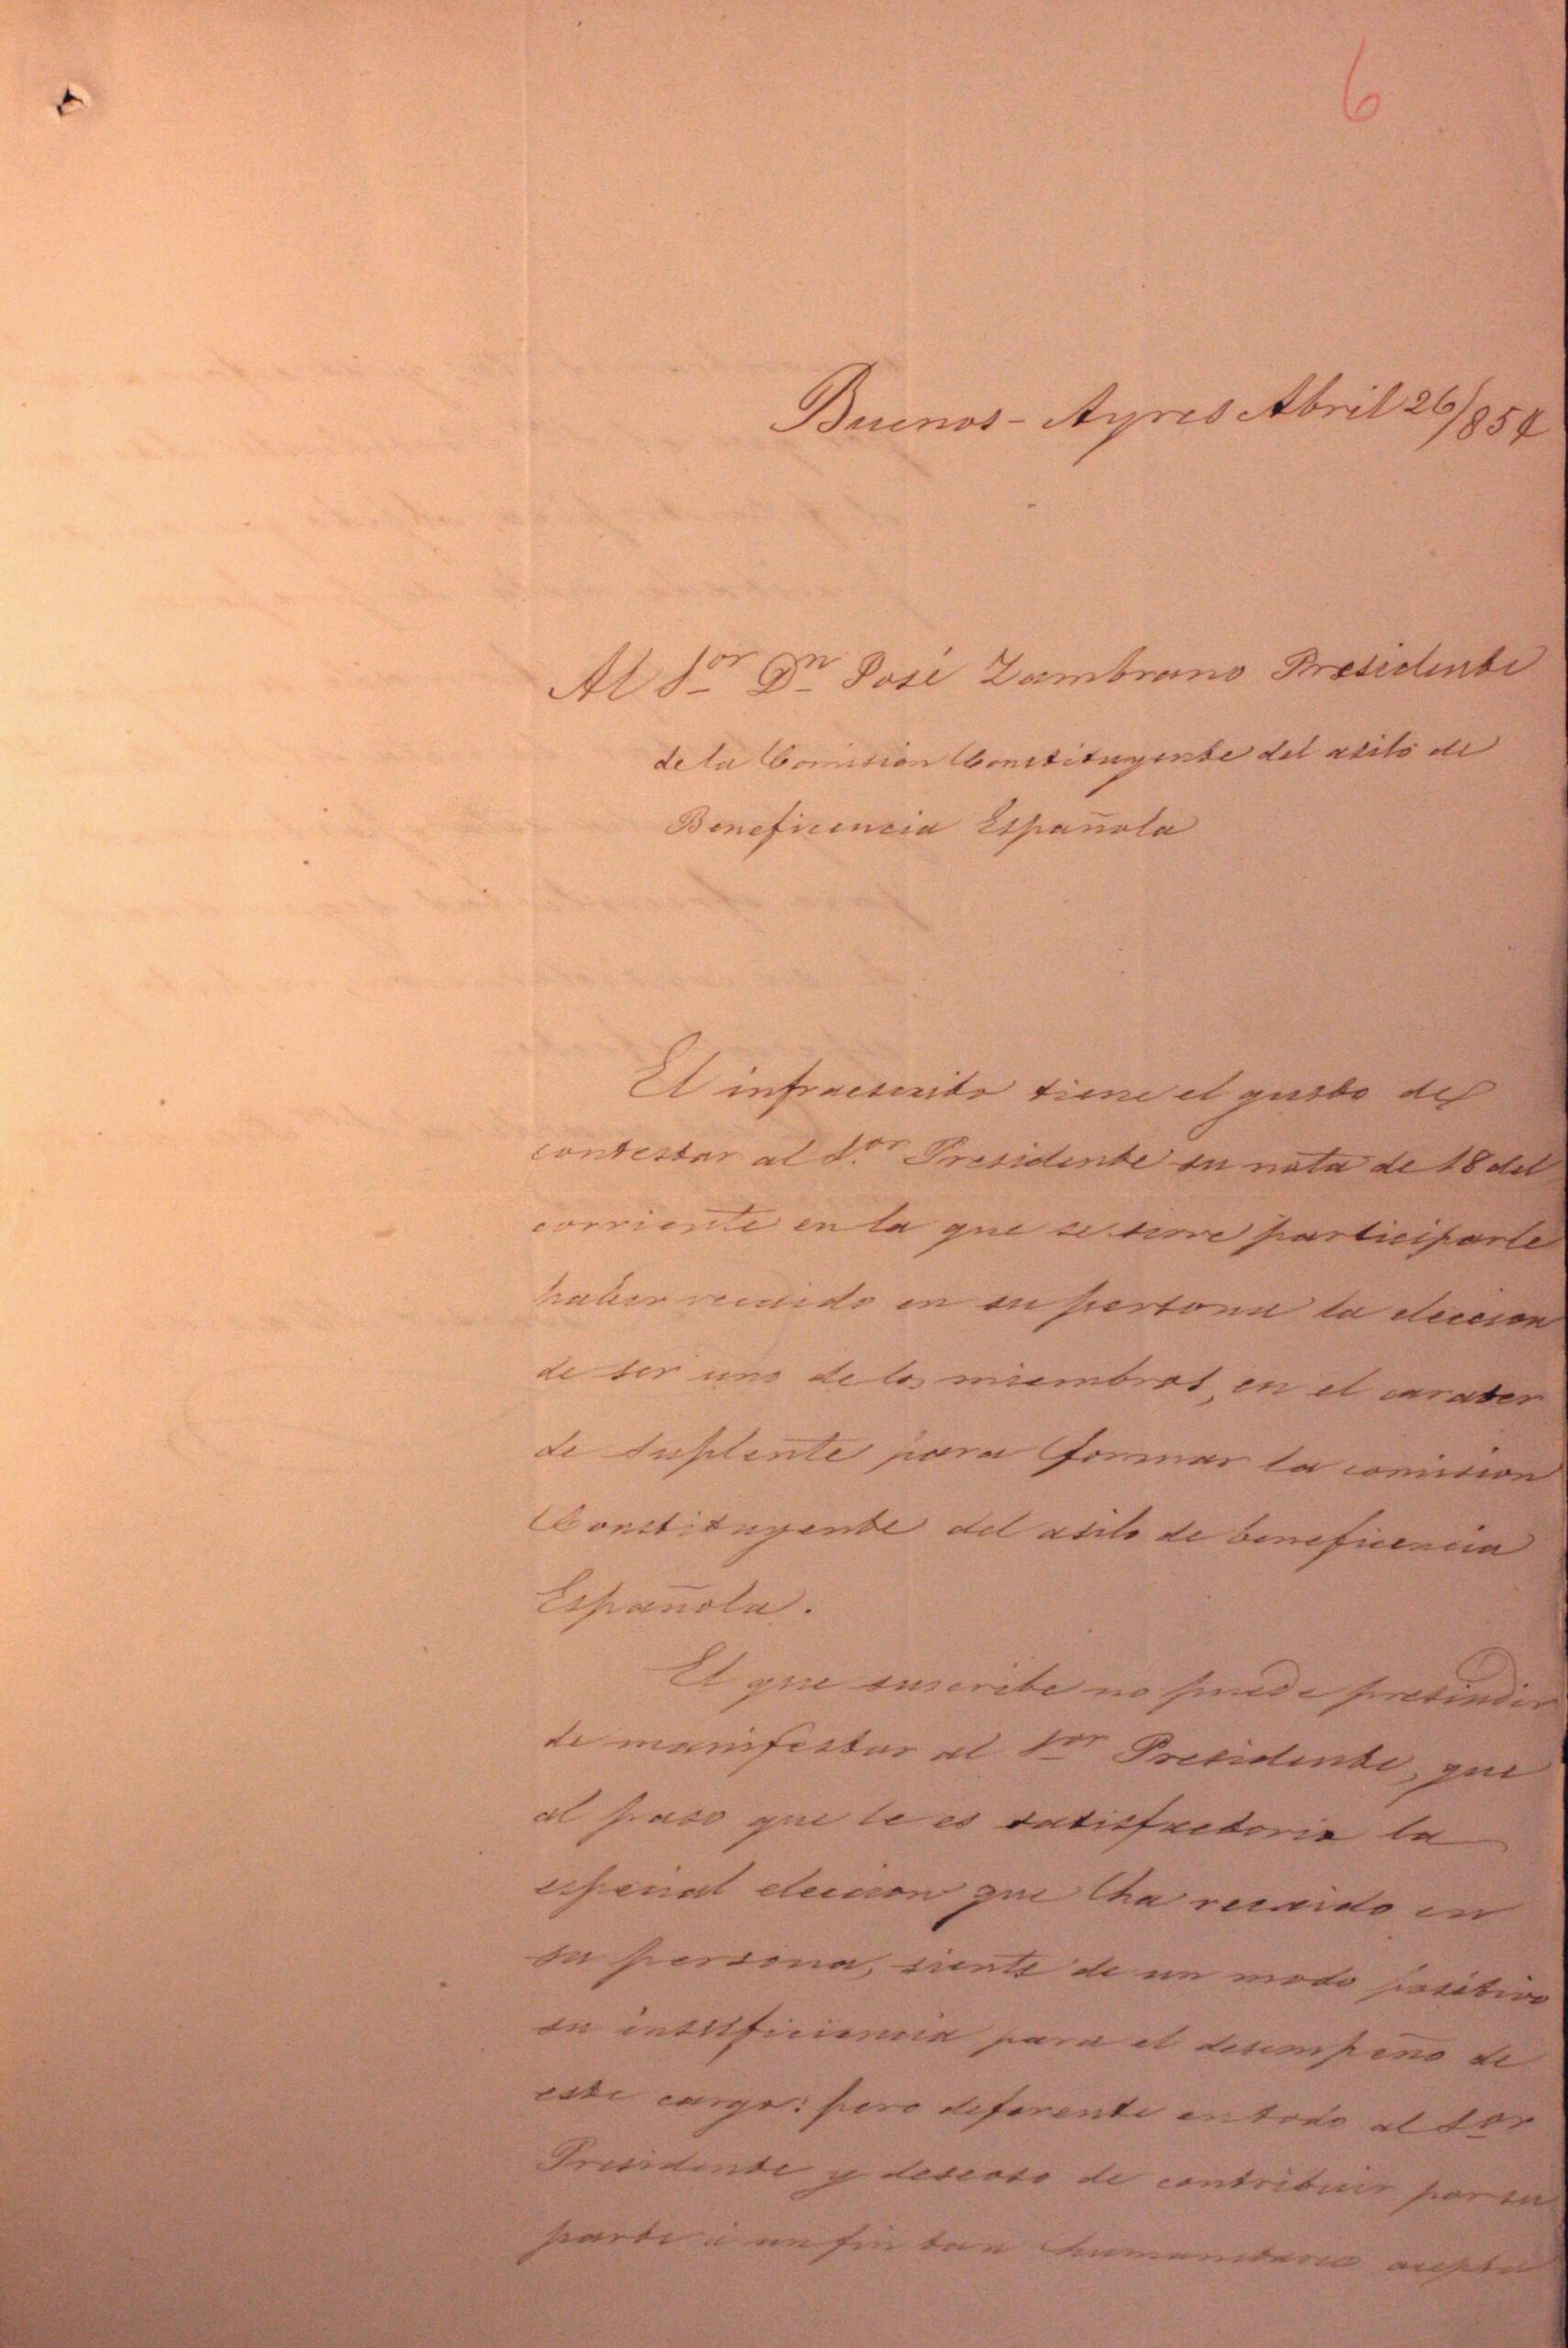 6
Buenos-Ayres Abril 26/854
Al Sor Dn José Zambrano Presidente
de la Comision Constituyente del asilo de
Beneficencia Española
El infraescrito tiene el gusto de
contestar al S.or Presidente su nota de 18 del
corriente en la que se sirve participarle
haber recaido en su persona la eleccion
de ser uno de los miembros, en el carater
de suplente para formar la comision
Constituyente del asilo de beneficencia
Española.
El que suscribe no puede presindir
de manifestar al Sor Presidente, que
al paso que le es satisfactoria la
especial eleccion que ha recaido en
su persona, siente de un modo positivo
su insuficiencia para el desempeño de
este cargo: pero deferente en todo al Sor
Presidente y deseoso de contribuir por su
parte á un fin tan humanitario acepta